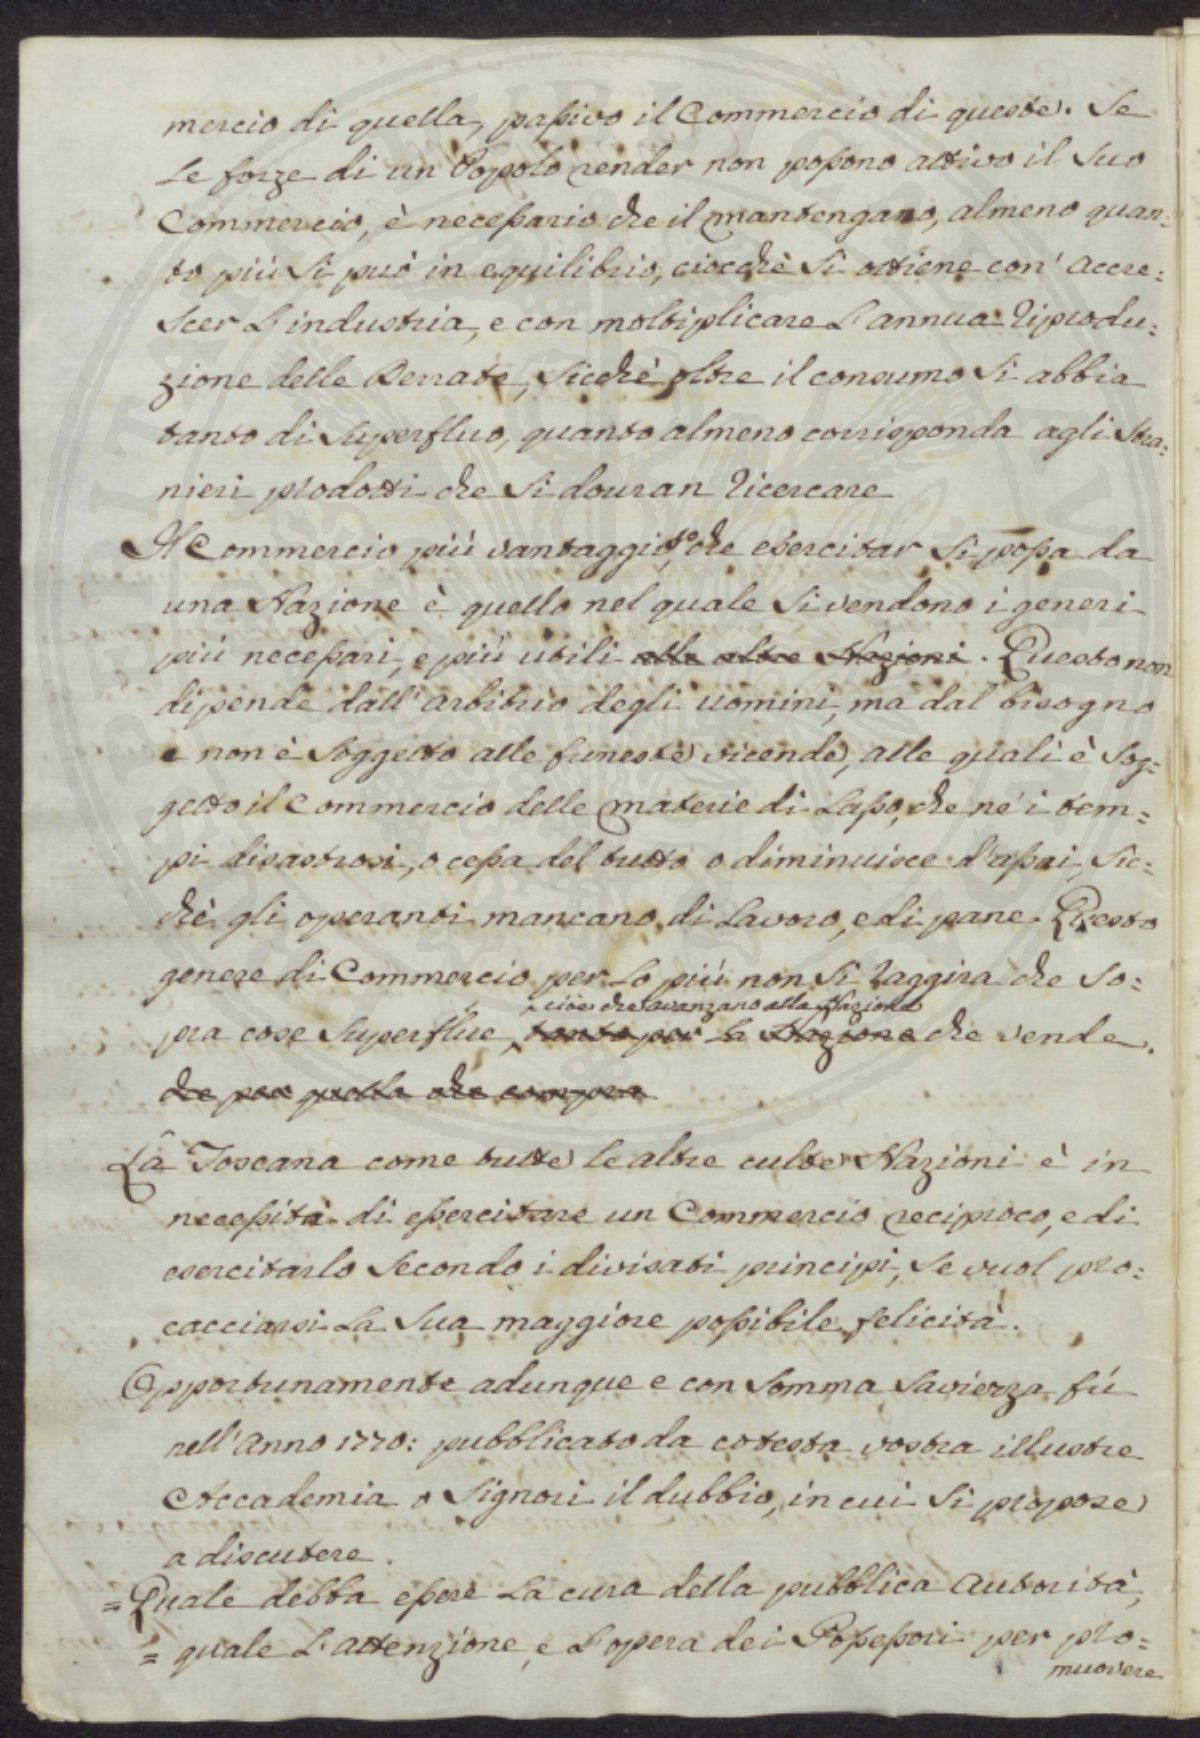 mercio di quella, passivo il Commercio di queste. Se
Le forze di un Popolo render non possono attivo il Suo
Commercio, è necessario che il mantengano, almeno quan=
to più Si può in equilibrio, ciocchè Si ottiene con' accre=
Scer L'industria, e con moltiplicare L'annua Riprodu=
zione delle Derrate, Sicchè oltre il consumo Si abbia
tanto di Superfluo, quanto almeno corrisponda agli Stra=
nieri prodotti che Si douran Ricercare
Il Commercio più vantaggioso che esercitar Si possa da
una Nazione è quello nel quale Si vendono i generi
più necessari, e più utili alle altre Nazioni. Questo non
dipende dall'arbitrio degli uomini, ma dal bisogno
e non è Soggetto alle funeste vicende, alle quali è Sog=
getto il Commercio delle materie di Lusso, che ne' i tem=
pi disastrosi, o cessa del tutto o diminuisce d'assai, Sic=
chè gli operanti mancano di Lavoro, e di pane. Questo
genere di Commercio per Lo più non Si Raggira che So=
cioè che avanzano alla Nazione
pra cose Superflue, tanto per La Nazione che vende.
che per quella che compra
La Toscana come tutte le altre culte Nazioni è in
necessità di essercitare un Commercio reciproco, e di
esercitarlo Secondo i divisati principi, Se vuol pro=
cacciarsi La Sua maggiore possibile felicità.
Opportunamente adunque e con Somma Savierza fú
nell'Anno 1770: pubblicato da cotesta vostra illustre
Accademia o Signori il dubbio, in cui Si propose
a discutere.
= Quale debba essere La cura della pubblica Autorità,
= quale L'attenzione, e L'opera dei Possessori per pro=
muovere